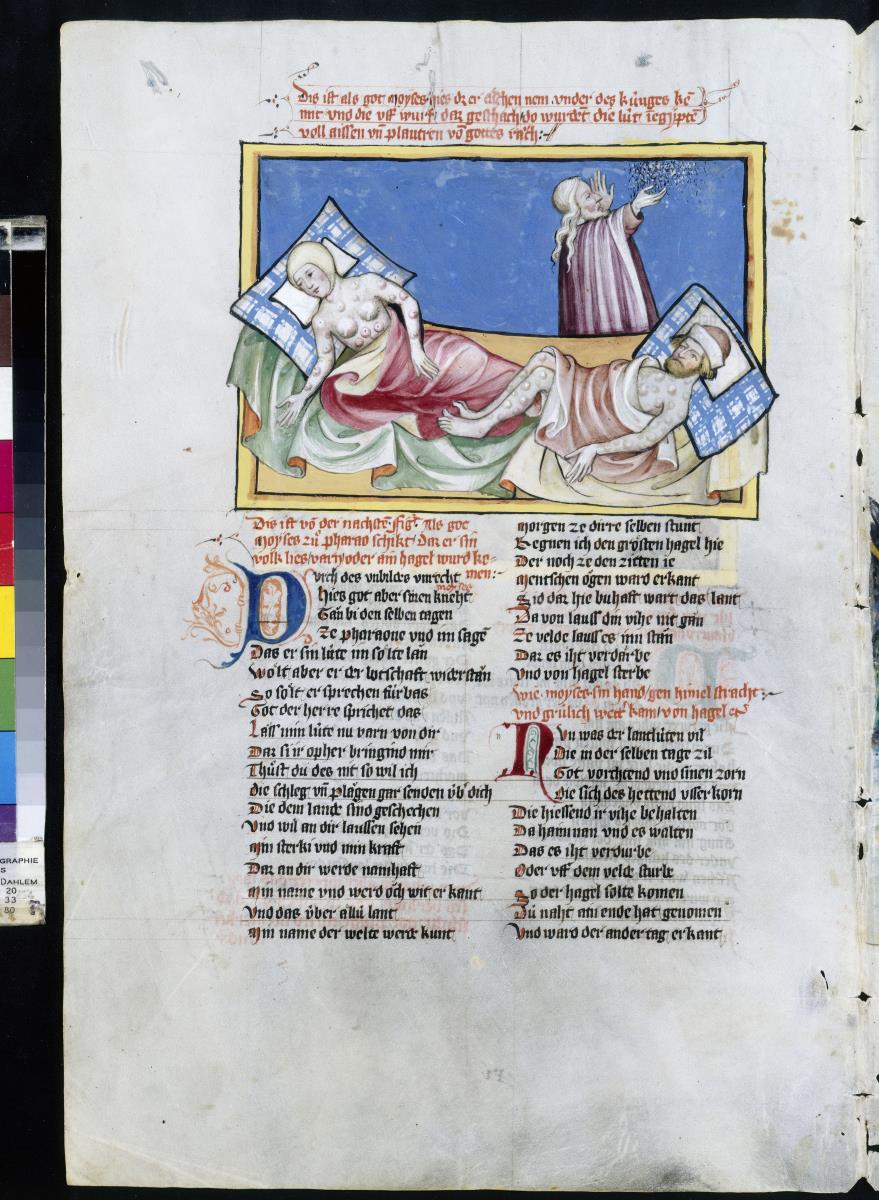 Dis ist als got moyses hies dz er aschen nem vnder des kunges ke
mt vnd die vff wurf daz geschach do wurdet die lut
voll aissen vn plautren vo gottes rach
Dis ist vo der nachste fig Als got
moyses zu pharao schikt daz er sin
volk lies varn oder ain hagel wurd ke
men
Durch des vnbildes vnrecht
moyses
hies got aber sinen kneht
Gan bi den selben tagen
Ze pharaone vnd im sage
Das er sin lute im solte lan
Wolt aber er der botschaft widerstan
So solt er sprechen fürbas
Got der herre sprichet das
Lass min lute nu varn von dir
Daz si ir opher bringind mir
Thust du des nit so wil ich
die schleg vn plagen gar senden vb dich
Die dem lande sind geschechen
Vnd wil an dir laussen sehen
Min sterki vnd min kraft
Daz an dir werde namhaft
Min name vnd werd och wit erkant
Vnd das über allü lant
Min name der welte werde kunt
Morgen ze dirre selben stunt
Regnen ich den grosten hagel hie
Der noch ze den ziten ie
Mentschen ogen ward erkant
Sid daz hie buhaft wart das lant
Da von lauss din vihe nit gan
Ze velde lauss es inn stan
Daz es iht verdarbe
Vnd von hagel sterbe
Wie moyses sin hand gen himel stracht
vnd grulich wett kam von hagel
Nvn was der lantlüten vil
Die in der selben tage zil
Got vorchtend vnd sinen zorn
Die sich des hettend vsserkorn
Die hiessend ir vihe behalten
Da haiman vnd es walten
Das es iht verdurbe
Oder vff dem velde sturbe
So der hagel solte komen
Dü naht ain ende hat genomen
Vnd ward der ander tag erkant
GRAPHIE
S
DAHLEM
20
33
80